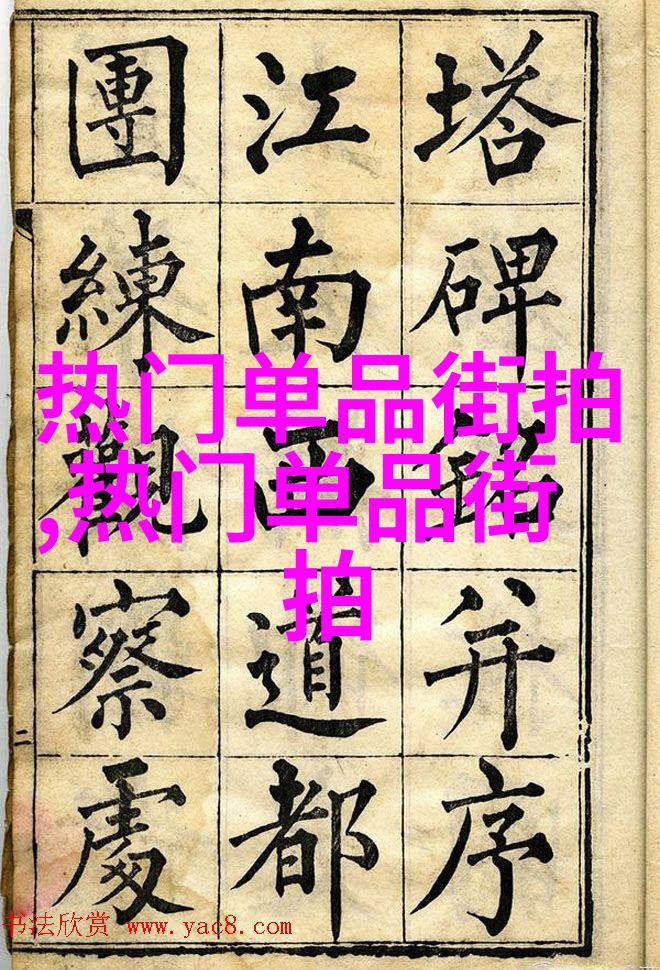 塔碑銘并序
江南西道都
團練觀察處
二
热门单品街拍
,热门单品街
拍
书法欣赏 www.yac8.com